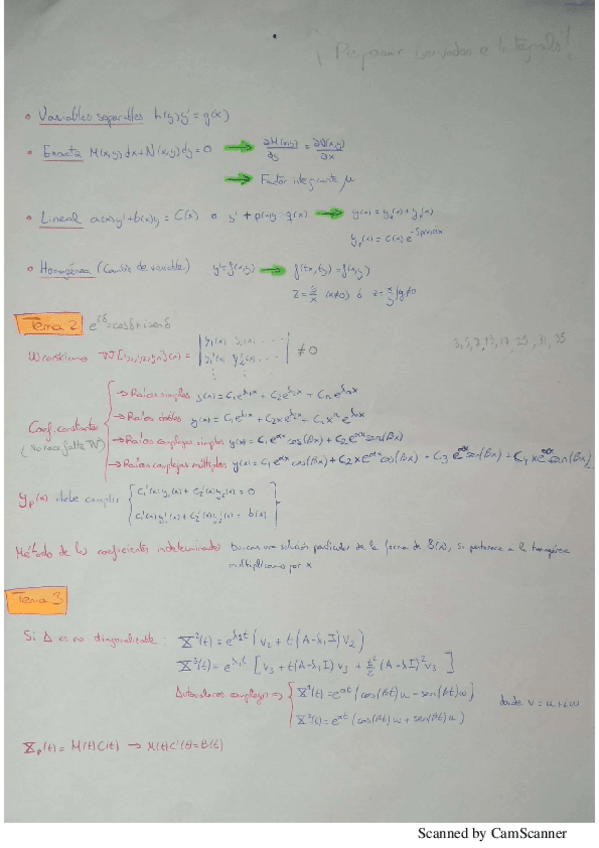 ¡Repasar derivadas e Integrales!
• Variables separables h(y)y' = g(x)
• Exacta M(x,y)dx + N(x,y)dy = 0 → ∂M(x,y)/∂y = ∂N(x,y)/∂x
→ Factor integrante μ
• Lineal a(x)y' + b(x)y = C(x) o y' + p(x)y = q(x) → y(x) = y_h(x) + y_p(x)
y_p(x) = C(x) e^{-∫p(x)dx}
• Homogénea (Cambio de variable) y' = f(x,y) → f(tx,ty) = f(x,y)
z = y/x (x≠0) ó z = x/y y≠0
Tema 2 e^{iθ} = cosθ + i senθ
3, 5, 7, 13, 17, 25, 31, 35
Wronskiano W[y_1,y_2,y_n](x) = | y_1(x) y_2(x) ... | ≠ 0
| y_1'(x) y_2'(x) ... |
⋮ ⋮
Coef. constantes
(No hace falta W)
→ Raíces simples y(x) = C_1e^{λ_1x} + C_2e^{λ_2x} + C_ne^{λ_nx}
→ Raíces dobles y(x) = C_1e^{λx} + C_2xe^{λx} + C_nx^ne^{λx}
→ Raíces complejas simples y(x) = C_1e^{αx}cos(βx) + C_2e^{αx}sen(βx)
→ Raíces complejas múltiples y(x) = C_1e^{αx}cos(βx) + C_2xe^{αx}cos(βx) + C_3e^{αx}sen(βx) + C_4xe^{αx}sen(βx)
y_p(x) debe cumplir { C_1'(x)y_1(x) + C_2'(x)y_2(x) = 0
C_1'(x)y_1'(x) + C_2'(x)y_2'(x) = b(x)
Método de los coeficientes indeterminados Buscar una solución particular de la forma de b(x), si pertenece a la homogénea
multiplicamos por x
Tema 3
Si A es no diagonalizable: X²(t) = e^{λ_1t} (v_2 + t(A-λ_1I)v_2)
X³(t) = e^{λ_1t} [v_3 + t(A-λ_1I)v_3 + t²/2 (A-λI)²v_3]
Autovalores complejos ⇒ { X¹(t) = e^{αt}(cos(βt)u - sen(βt)w)
donde v = u + iw
X²(t) = e^{αt}(cos(βt)w + sen(βt)u)
X_p(t) = M(t)C(t) → M(t)C'(t) = B(t)
Scanned by CamScanner